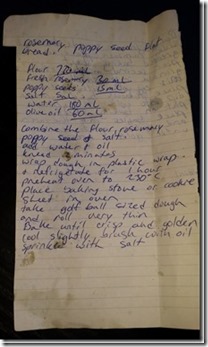 rosemary poppy seed flat
bread.
flour
fresh rosemary 30 ml
poppy seeds 15 ml
salt 5ml
water 180 ml
olive oil 60 ml
Combine the flour, rosemary
poppy seed & salt.
add water & oil
knead minutes
wrap dough in plastic wrap
& refrigerate for 1 hour
preheat oven to 230°C
place baking stone or cookie
sheet in oven
take golf ball sized dough
and roll very thin
Bake until crisp and golden
cool slightly brush with oil
sprinkle with salt